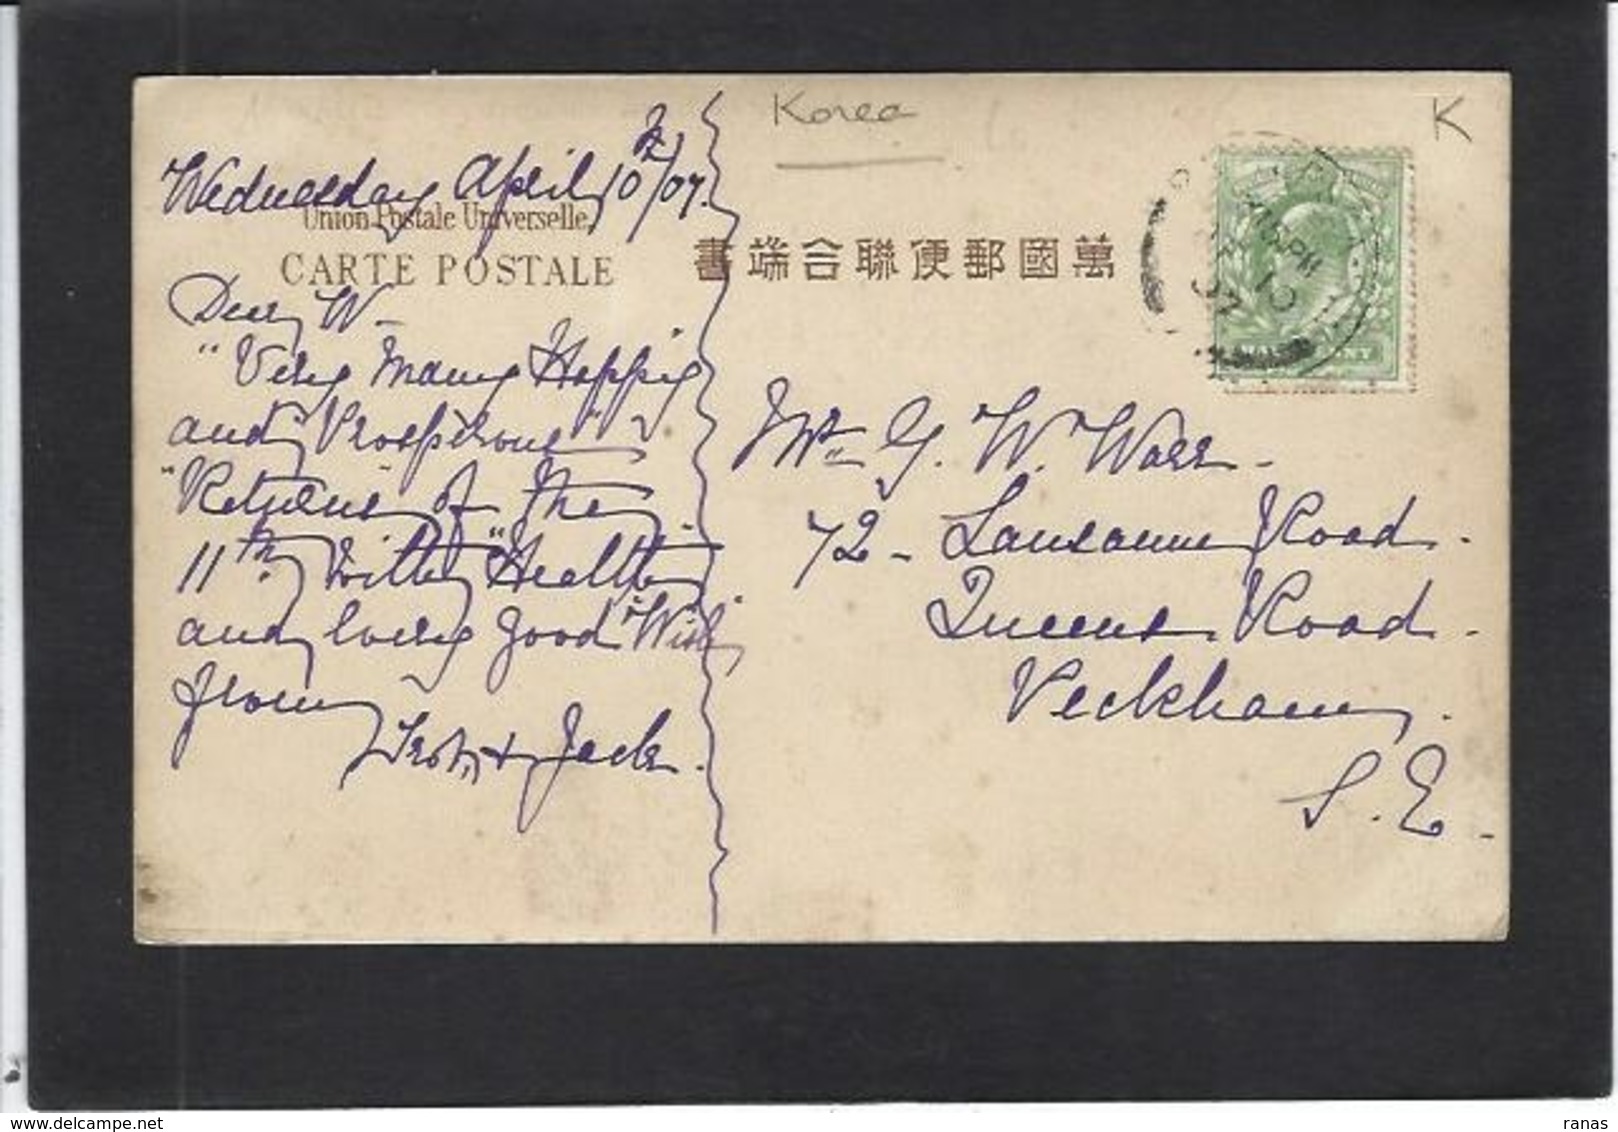 Korea
K
Wednesday April 10th/07.
Union Postale Universelle
CARTE POSTALE
書端合聯便郵國萬
Dear W-
"Very Many Happy
and Prosperous"
"Returns of the
11th with "Health"
and loving good "Wish"
from
+ Jack.
Mr G. W. Warr-
72- Lausanne Road.
Queens Road.
Peckham.
S.E.
ranas